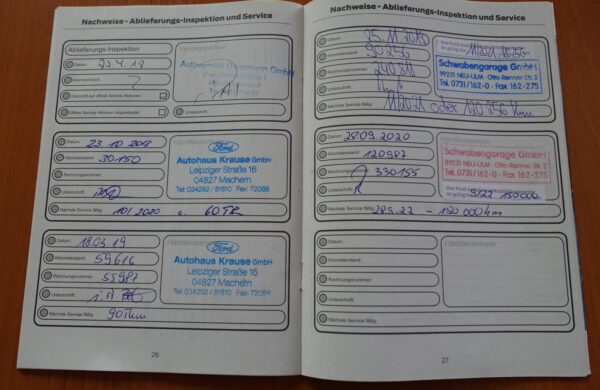 Nachweise - Ablieferungs-Inspektion und Service
Ablieferungs-Inspektion
Datum:
Kilometerstand:
Überprüft auf offene Service Aktionen
Offene Service Aktionen abgearbeitet
Autovertrieb Gerstmann GmbH
Datum: 23.10.2018
Kilometerstand: 30.150
Rechnungsnummer:
Unterschrift:
Nächste Service fällig: 10/2020 o. 60TK
Händlerstempel
Ford
Autohaus Krause GmbH
Leipziger Straße 16
04827 Machern
Tel: 034292 / 81810 Fax: 72088
Datum: 18.03.19
Kilometerstand: 59616
Rechnungsnummer: 55987
Unterschrift: i.A.
Nächste Service fällig: 90Tkm
Händlerstempel
Ford
Autohaus Krause GmbH
Leipziger Straße 16
04827 Machern
Tel: 034292 / 81810 Fax: 72088
26
Nachweise - Ablieferungs-Inspektion und Service
Datum:
Kilometerstand: 90256
Rechnungsnummer:
Unterschrift:
Nächste Service fällig: 11/2021 oder 120256 km
Schwabengarage GmbH
89231 NEU-ULM · Otto-Renner-Str. 2
Tel. 0731/162-0 · Fax 162-275
Datum: 28.09.2020
Kilometerstand: 120987
Rechnungsnummer: 330155
Unterschrift:
Nächste Service fällig: 28.9.22 - 150 000 km
Händlerstempel
Schwabengarage GmbH
89231 NEU-ULM · Otto-Renner-Str. 2
Tel. 0731/162-0 · Fax 162-275
9/22 150000
Datum:
Kilometerstand:
Rechnungsnummer:
Unterschrift:
Nächste Service fällig:
Händlerstempel
27